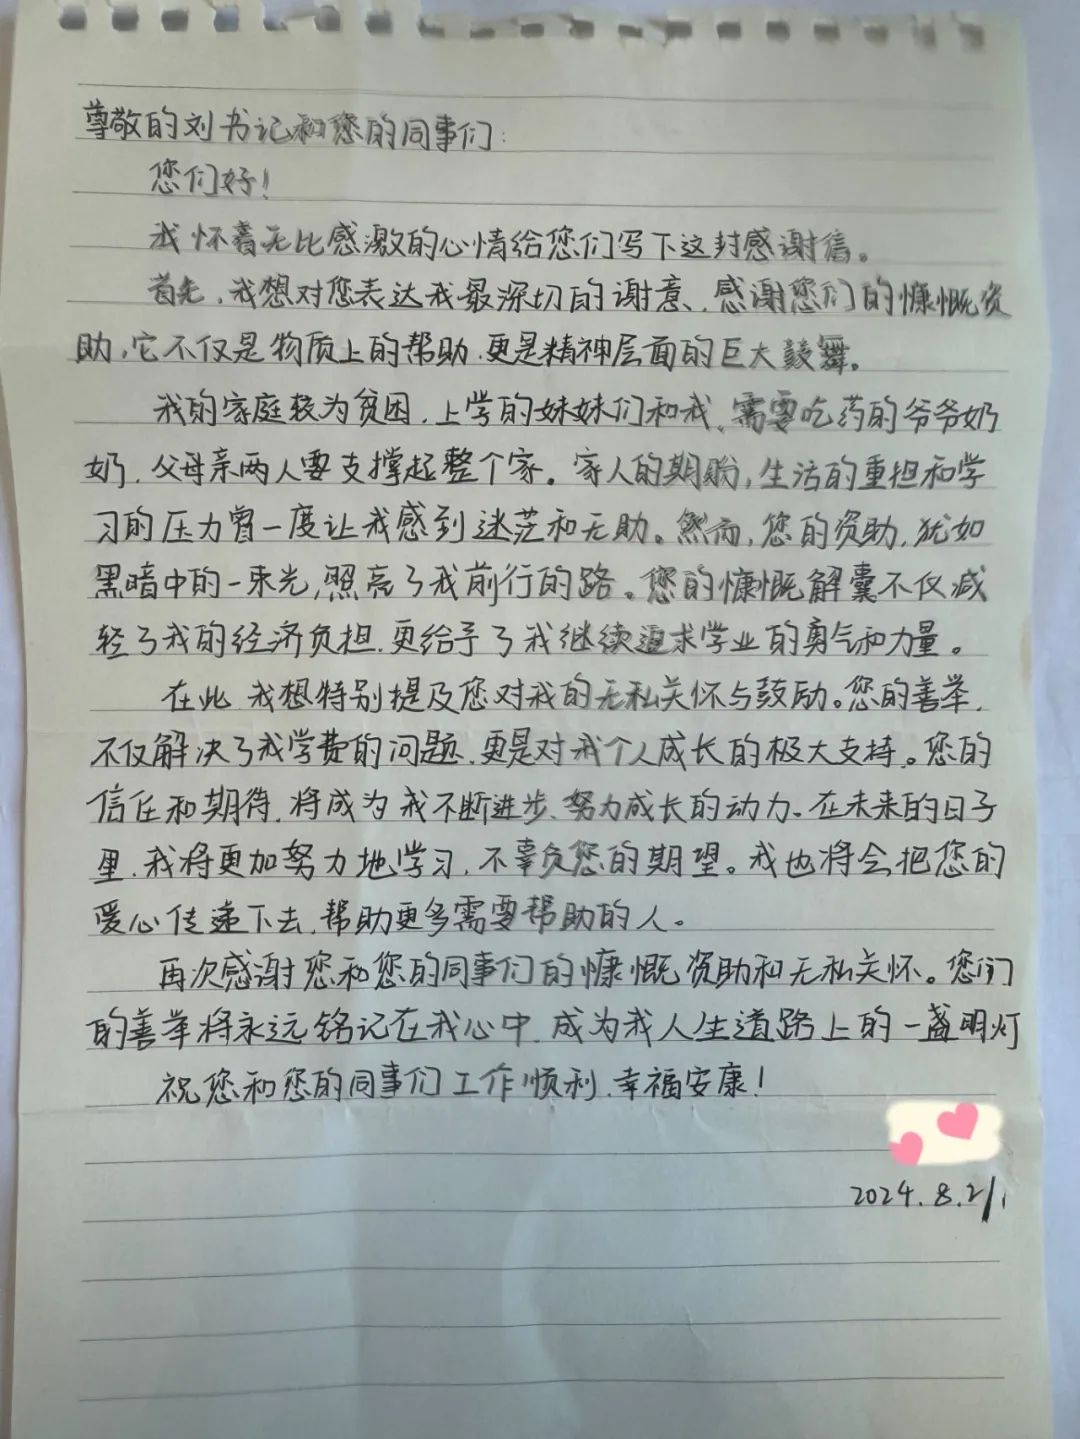 尊敬的刘书记和您的同事们:
您们好!
我怀着无比感激的心情给您们写下这封感谢信。
首先,我想对您表达我最深切的谢意、感谢您们的慷慨资
助,它不仅是物质上的帮助,更是精神层面的巨大鼓舞。
我的家庭较为贫困,上学的妹妹们和我,需要吃药的爷爷奶
奶,父母亲两人要支撑起整个家。家人的期盼,生活的重担和学
习的压力曾一度让我感到迷茫和无助。然而,您的资助,犹如
黑暗中的一束光,照亮了我前行的路。您的慷慨解囊不仅减
轻了我的经济负担,更给予了我继续追求学业的勇气和力量。
在此 我想特别提及您对我的无私关怀与鼓励。您的善举,
不仅解决了我学费的问题,更是对我个人成长的极大支持。您的
信任和期待,将成为我不断进步、努力成长的动力、在未来的日子
里,我将更加努力地学习,不辜负您的期望。我也将会把您的
爱心传递下去,帮助更多需要帮助的人。
再次感谢您和您的同事们的慷慨资助和无私关怀。您们
的善举将永远铭记在我心中,成为我人生道路上的一盏明灯
祝您和您的同事们工作顺利,幸福安康!
2024.8.21